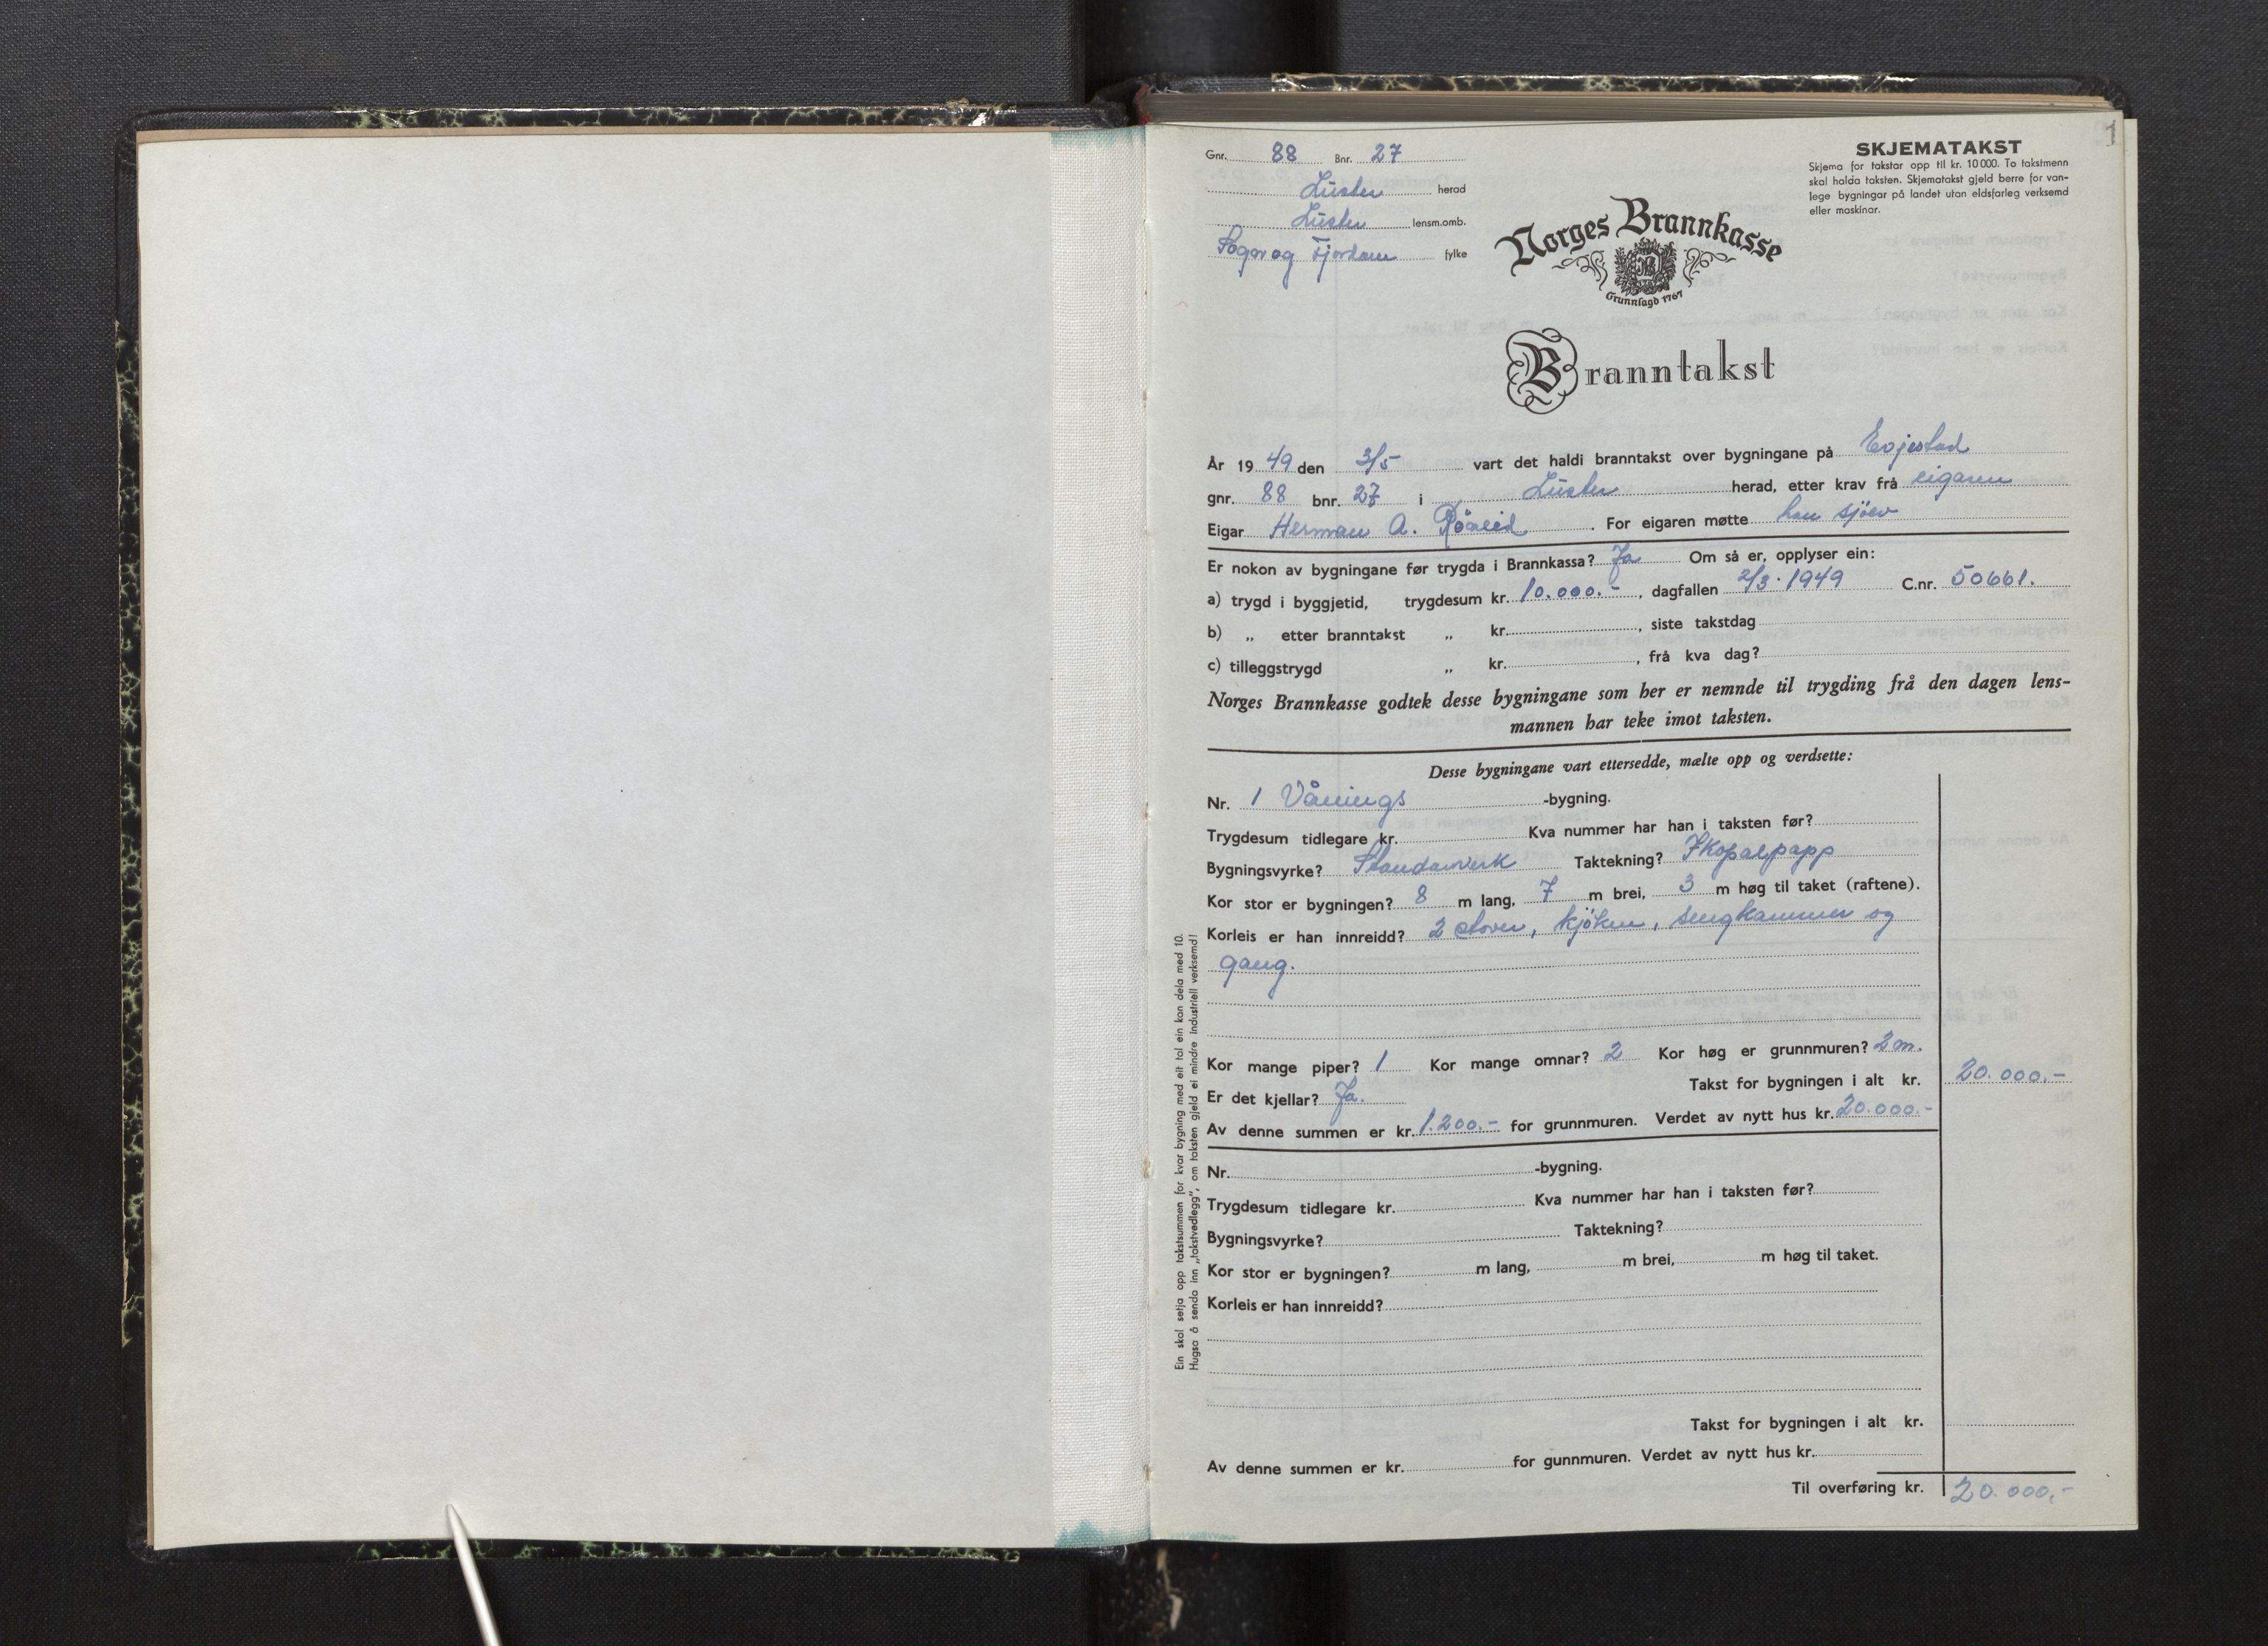 1
Gnr. 88 Bnr. 27
Luster herad
Luster lensm.omb.
Sogn og Fjordane fylke
SKJEMATAKST
Skjema for takstar opp til kr. 10 000. To takstmenn
skal halda taksten. Skjematakst gjeld berre for van-
lege bygningar på landet utan eldsfarleg verksemd
eller maskinar.
Norges Brannkasse
Grunnlagd 1767
Branntakst
År 19 49 den 3/5 vart det haldi branntakst over bygningane på Evjestad
gnr. 88 bnr. 27 i Luster herad, etter krav frå eigaren
Eigar Herman A. For eigaren møtte han sjöлv
Er nokon av bygningane før trygda i Brannkassa? Ja Om så er, opplyser ein:
a) trygd i byggjetid, trygdesum kr. 10.000.-, dagfallen 2/3.1949 C.nr. 50661.
b) „ etter branntakst „ kr. , siste takstdag
c) tilleggstrygd „ kr. , frå kva dag?
Norges Brannkasse godtek desse bygningane som her er nemnde til trygding frå den dagen lens-
mannen har teke imot taksten.
Desse bygningane vart ettersedde, mælte opp og verdsette:
Nr. 1 Vånings -bygning.
Trygdesum tidlegare kr. Kva nummer har han i taksten før?
Bygningsvyrke? Standarverk Taktekning? Ikopalpapp
Kor stor er bygningen? 8 m lang, 7 m brei, 3 m høg til taket (raftene).
Korleis er han innreidd? 2 stover, kjöken, sengkammer og
gang.
Kor mange piper? 1 Kor mange omnar? 2 Kor høg er grunnmuren? 2 m.
Er det kjellar? Ja. Takst for bygningen i alt kr. 20.000.-
Av denne summen er kr. 1.200.- for grunnmuren. Verdet av nytt hus kr. 20.000.-
Nr. -bygning.
Trygdesum tidlegare kr. Kva nummer har han i taksten før?
Bygningsvyrke? Taktekning?
Kor stor er bygningen? m lang, m brei, m høg til taket.
Korleis er han innreidd?
Takst for bygningen i alt kr.
Av denne summen er kr. for gunnmuren. Verdet av nytt hus kr.
Til overføring kr. 20.000,-
Ein skal setja opp takstsummen for kvar bygning med eit tal ein kan dela med 10.
Hugsa å senda inn „takstvedlegg", om taksten gjeld ei mindre industriell verksemd!